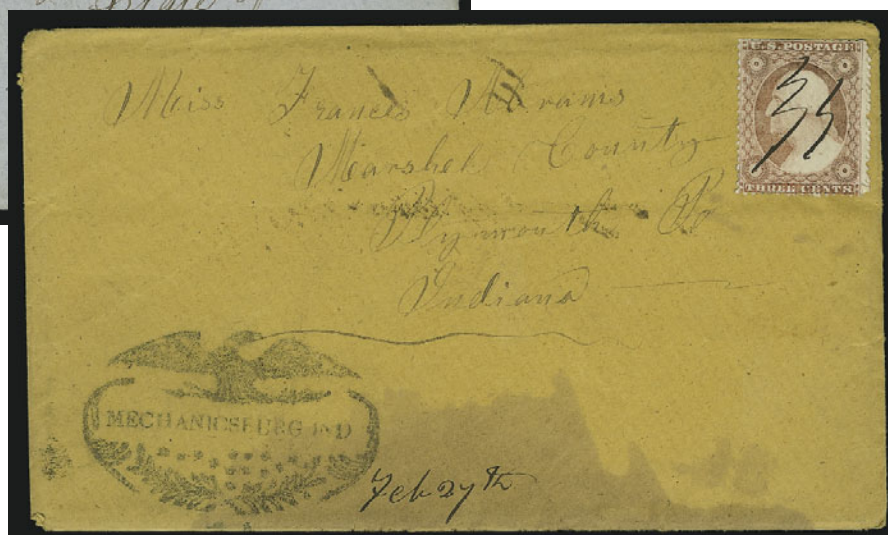 State of
U.S. POSTAGE
THREE CENTS
Miss Frances Abrams
Marshel County
Plymouth Po
Indiana
MECHANICSBURG IND
Feb 27th